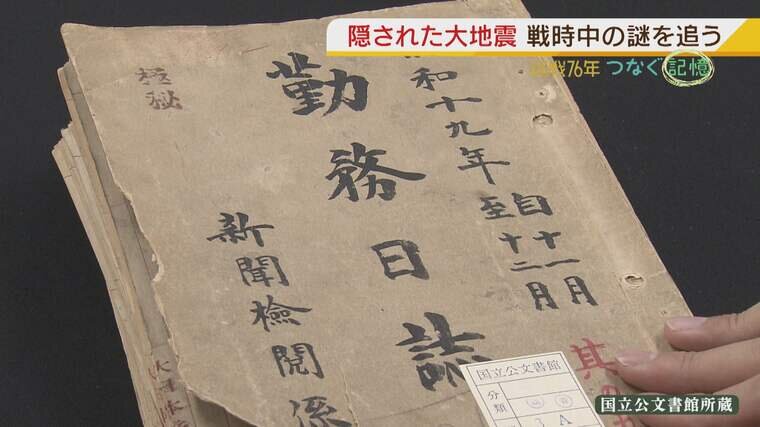 隠された大地震 戦時中の謎を追う
76年 つなぐ記憶
極秘
和十九年
自十一月
至十二月
勤務日誌
新聞検閲係
其
国立公文書館
分類
A
国立公文書館所蔵